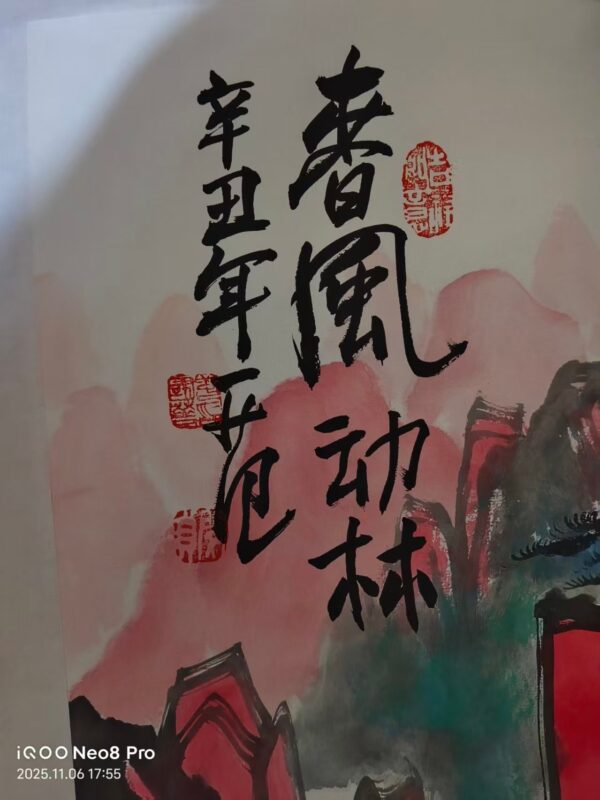 春風动林
辛丑年
iQOO Neo8 Pro
2025.11.06 17:55